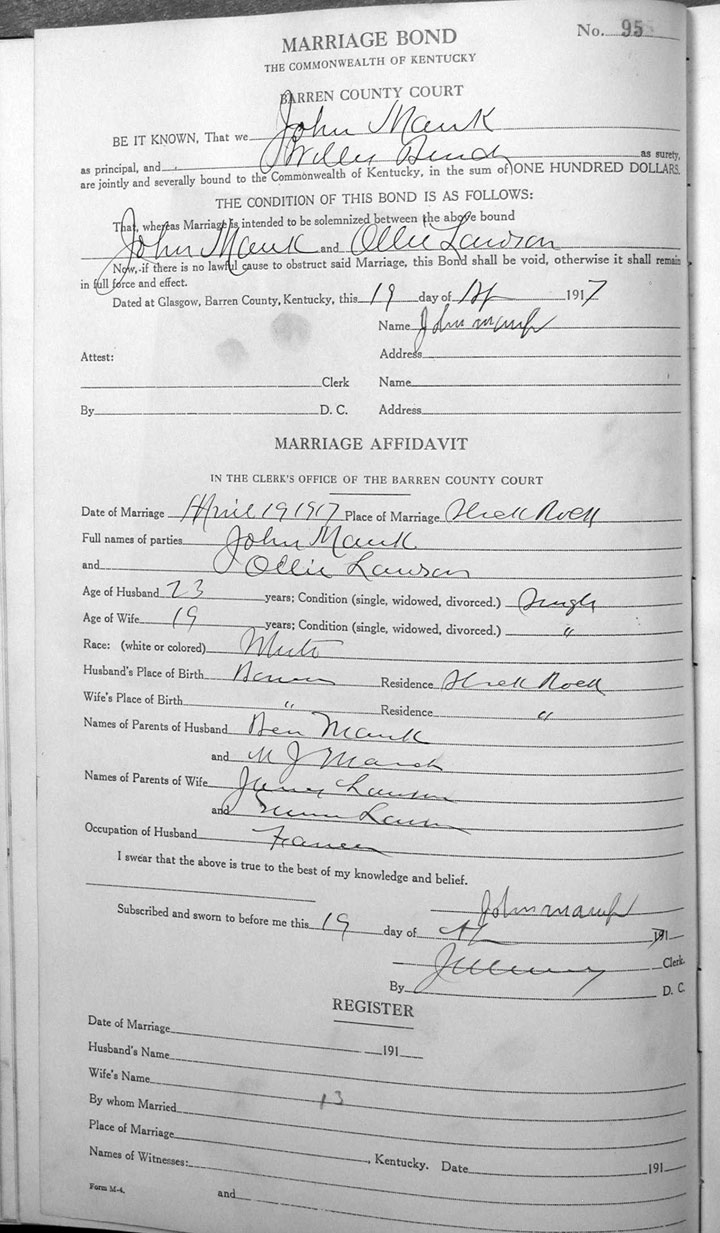 MARRIAGE BOND
No. 95
THE COMMONWEALTH OF KENTUCKY
BARREN COUNTY COURT
BE IT KNOWN, That we John Mauk
as principal, and Willie as surety,
are jointly and severally bound to the Commonwealth of Kentucky, in the sum of ONE HUNDRED DOLLARS.
THE CONDITION OF THIS BOND IS AS FOLLOWS:
That, whereas Marriage is intended to be solemnized between the above bound
John Mauk and Ollie Lawson
Now, if there is no lawful cause to obstruct said Marriage, this Bond shall be void, otherwise it shall remain
in full force and effect.
Dated at Glasgow, Barren County, Kentucky, this 19 day of Ap 1917
Name John
Attest: Address
Clerk Name
By D. C. Address
MARRIAGE AFFIDAVIT
IN THE CLERK'S OFFICE OF THE BARREN COUNTY COURT
Date of Marriage April 19 1917 Place of Marriage Slick Rock
Full names of parties John Mauk
and Ollie Lawson
Age of Husband 23 years; Condition (single, widowed, divorced.) Single
Age of Wife 19 years; Condition (single, widowed, divorced.) "
Race: (white or colored) White
Husband's Place of Birth Barren Residence Slick Rock
Wife's Place of Birth " Residence "
Names of Parents of Husband Ben Mauk
and M J Mauk
Names of Parents of Wife James Lawson
and Lawson
Occupation of Husband Farmer
I swear that the above is true to the best of my knowledge and belief.
John
Subscribed and sworn to before me this 19 day of Ap 191
Clerk.
By D. C.
REGISTER
Date of Marriage 191
Husband's Name
Wife's Name
By whom Married 13
Place of Marriage , Kentucky. Date 191
Names of Witnesses:
Form M-4. and